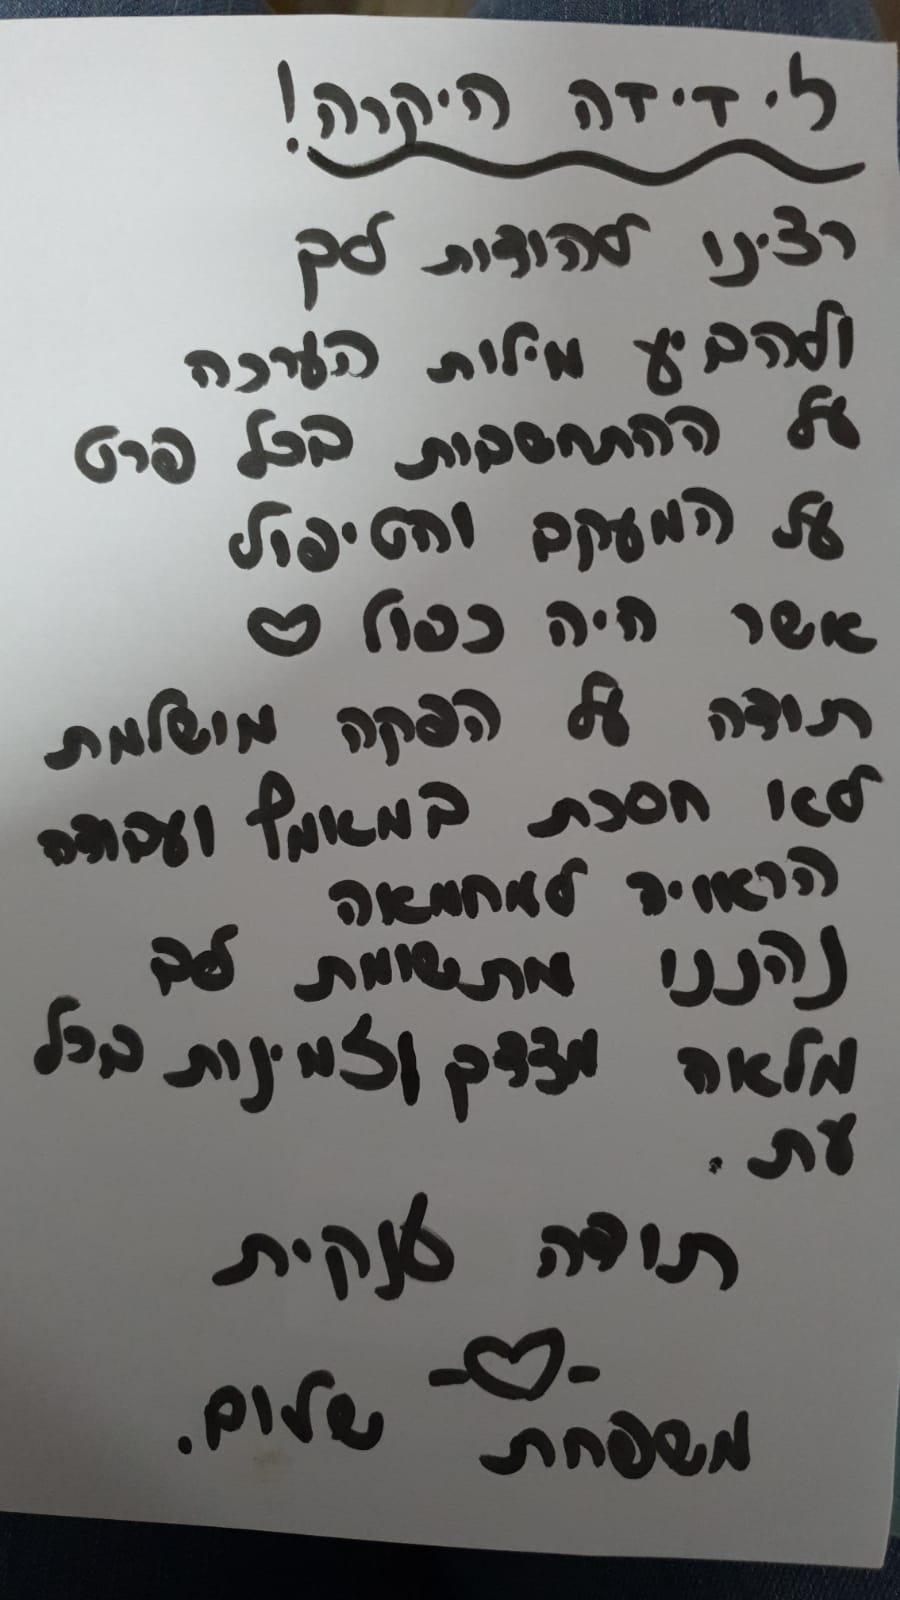 לידידה היקרה!
רצינו להודות לך
ולהביע מילות הערכה
על ההתחשבות בכל פרט
על המעקב והטיפול
אשר היה כפול ♡
תודה על הפקה מושלמת
לאו חסכת במאמץ ועבודה
הראויה למחמאה
נהננו מתשומת לב
מלאה מצדך וזמינות בכל
עת.
תודה ענקית
-♡-
משפחת שלום.